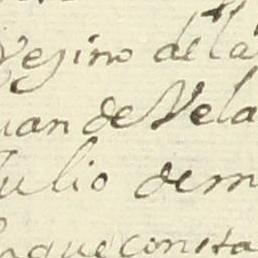 Vezino de la
uan de Vela
Julio de m
que consta